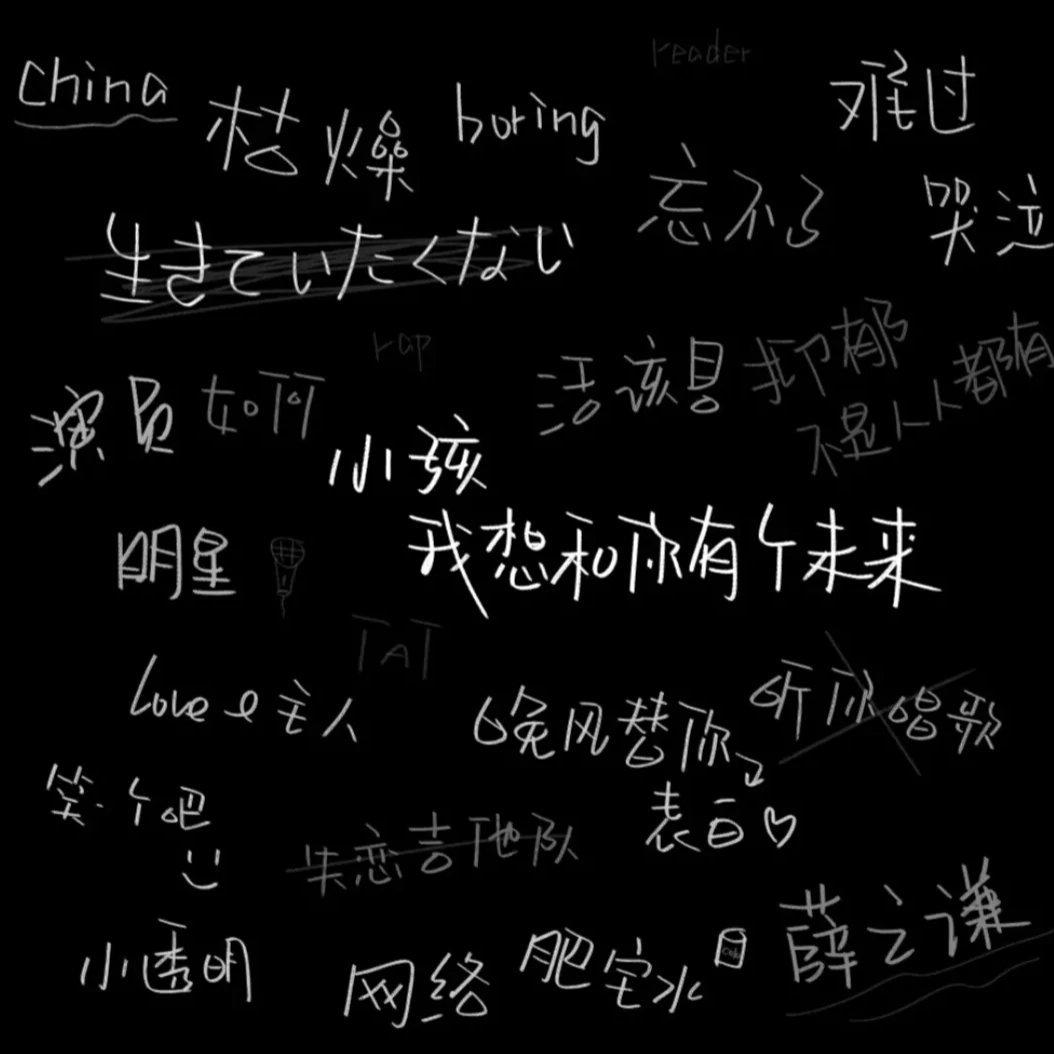 reader
china
枯燥
boring
难过
忘不了
哭泣
生きていたくない
rap
活该是
抑有郁
不是人人都有
演员
如何
小孩
我想和你有个未来
明星
TAT
Love
主人
晚风替你
表白
听你唱歌
笑个吧
失恋吉他队
小透明
网络
肥宅水
cola
薛之谦